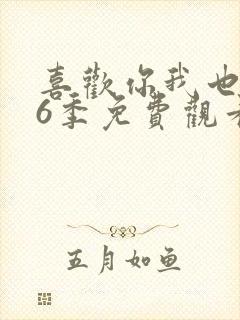 喜歡你我也
6季免費觀看
五月如鱼